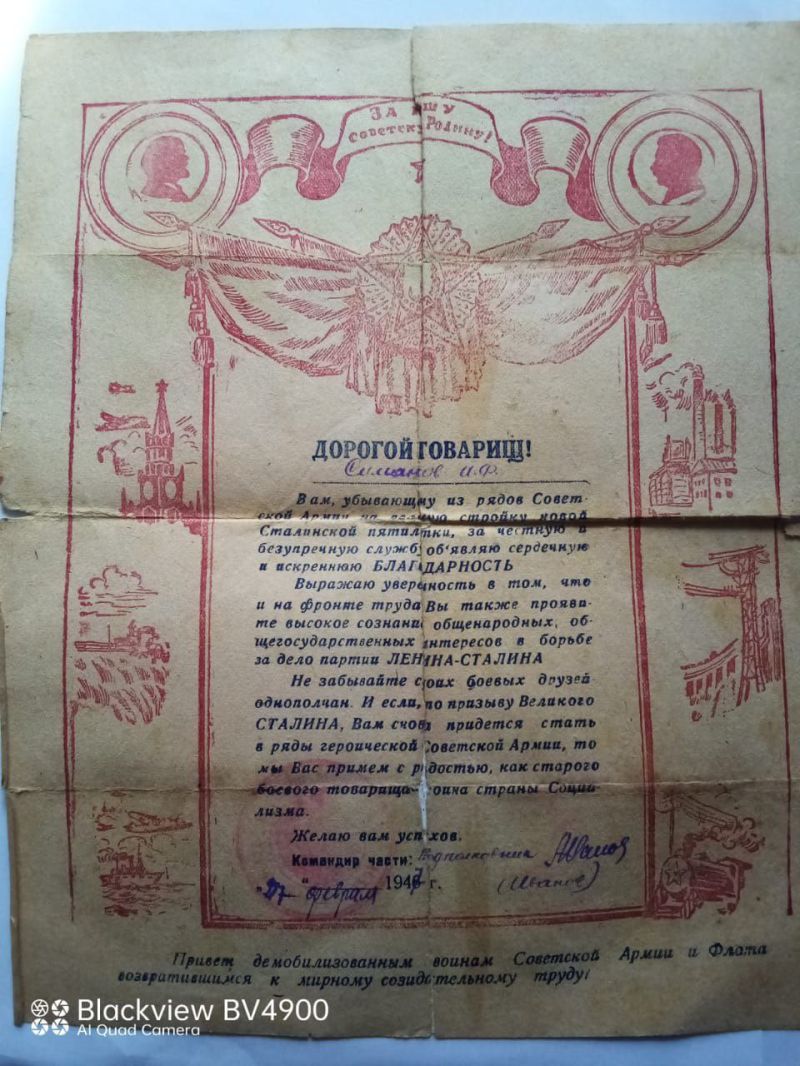 ЗА НАШУ
Советскую Родину!
ДОРОГОЙ ТОВАРИЩ!
И.Ф.
Вам, убывающему из рядов Совет-
ской Армии на великую стройку новой
Сталинской пятилетки, за честную и
безупречную службу об'являю сердечную
и искреннюю БЛАГОДАРНОСТЬ
Выражаю уверенность в том, что
и на фронте труда Вы также прояви-
те высокое сознание общенародных, об-
щегосударственных интересов в борьбе
за дело партии ЛЕНИНА-СТАЛИНА
Не забывайте своих боевых друзей
однополчан. И если, по призыву Великого
СТАЛИНА, Вам снова придется стать
в ряды героической Советской Армии, то
мы Вас примем с радостью, как старого
боевого товарища-воина страны Социа-
лизма.
Желаю вам успехов.
Командир части: Подполковник Иванов
"27" февраля 1947 г. (Иванов)
Привет демобилизованным воинам Советской Армии и Флота
возвратившимся к мирному созидательному труду!
Blackview BV4900
AI Quad Camera